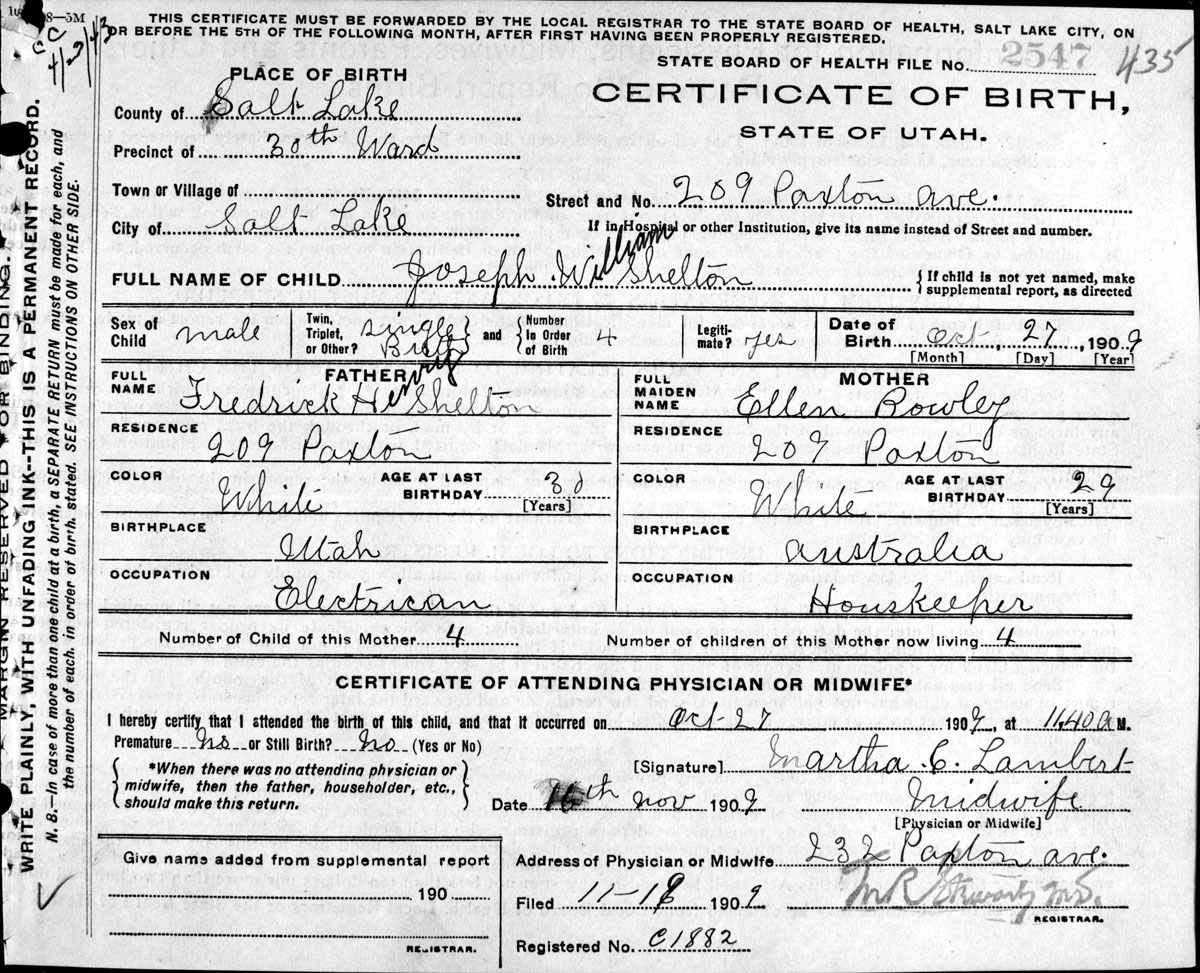 8—5M
THIS CERTIFICATE MUST BE FORWARDED BY THE LOCAL REGISTRAR TO THE STATE BOARD OF HEALTH, SALT LAKE CITY, ON
OR BEFORE THE 5TH OF THE FOLLOWING MONTH, AFTER FIRST HAVING BEEN PROPERLY REGISTERED.
CC
4/2/43
STATE BOARD OF HEALTH FILE No. 2547 435
CERTIFICATE OF BIRTH,
STATE OF UTAH.
PLACE OF BIRTH
County of Salt Lake
Precinct of 30th Ward
Town or Village of
City of Salt Lake
Street and No. 209 Paxton ave.
If in Hospital or other Institution, give its name instead of Street and number.
FULL NAME OF CHILD Joseph William Shelton { If child is not yet named, make
supplemental report, as directed
Sex of Child male
Twin, Triplet, or Other? Single Birth and Number In Order of Birth 4
Legitimate? yes
Date of Birth Oct 27 1909
[Month] [Day] [Year]
FATHER
FULL NAME Fredrick Henry Shelton
RESIDENCE 209 Paxton
COLOR White AGE AT LAST BIRTHDAY [Years]
BIRTHPLACE Utah
OCCUPATION Electrican
MOTHER
FULL MAIDEN NAME Ellen Rowley
RESIDENCE 209 Paxton
COLOR White AGE AT LAST BIRTHDAY 29 [Years]
BIRTHPLACE australia
OCCUPATION Houskeeper
Number of Child of this Mother 4 Number of children of this Mother now living 4
CERTIFICATE OF ATTENDING PHYSICIAN OR MIDWIFE*
I hereby certify that I attended the birth of this child, and that it occurred on Oct-27 1909, at 11.40 a M.
Premature No or Still Birth? No (Yes or No)
*When there was no attending physician or
midwife, then the father, householder, etc.,
should make this return.
[Signature] Martha C. Lambert
Date 16th nov 1909 midwife
[Physician or Midwife]
Give name added from supplemental report
190
REGISTRAR.
Address of Physician or Midwife 232 Paxton ave.
Filed 11-18 1909 M R Stewart M.D.
REGISTRAR.
Registered No. C1882
MARGIN RESERVED FOR BINDING.
WRITE PLAINLY, WITH UNFADING INK--THIS IS A PERMANENT RECORD.
N. B.—In case of more than one child at a birth, a SEPARATE RETURN must be made for each, and
the number of each, in order of birth, stated. SEE INSTRUCTIONS ON OTHER SIDE.